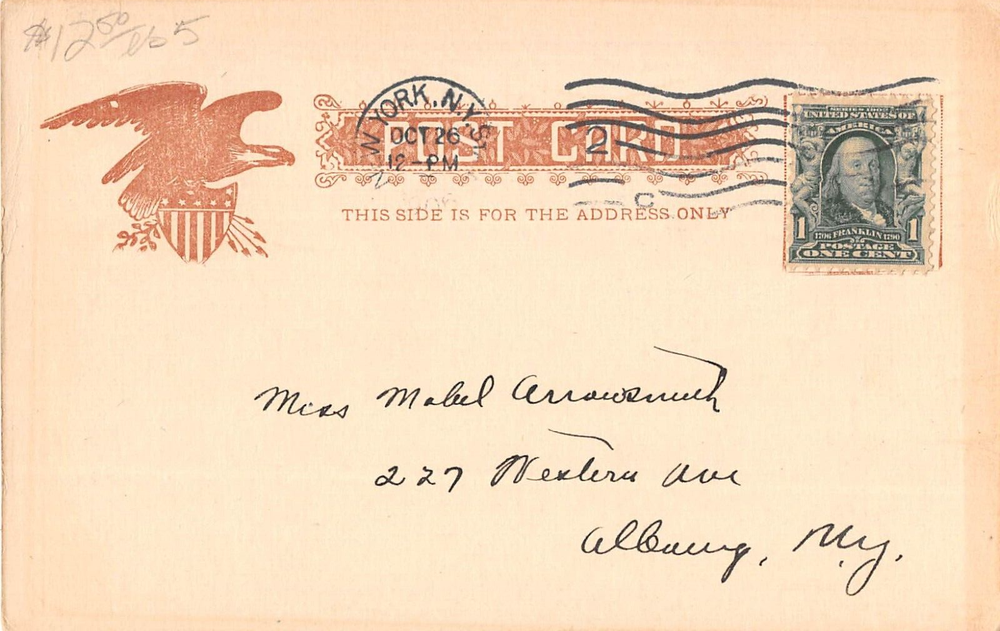 $12.50
W YORK, N.Y.
OCT 26
12-PM
2
C
POST CARD
THIS SIDE IS FOR THE ADDRESS ONLY
UNITED STATES OF
AMERICA
1 1
1706 FRANKLIN 1790
POSTAGE
ONE CENT
Miss Mabel Arrowsmith
227 Western Ave
Albany, N.Y.